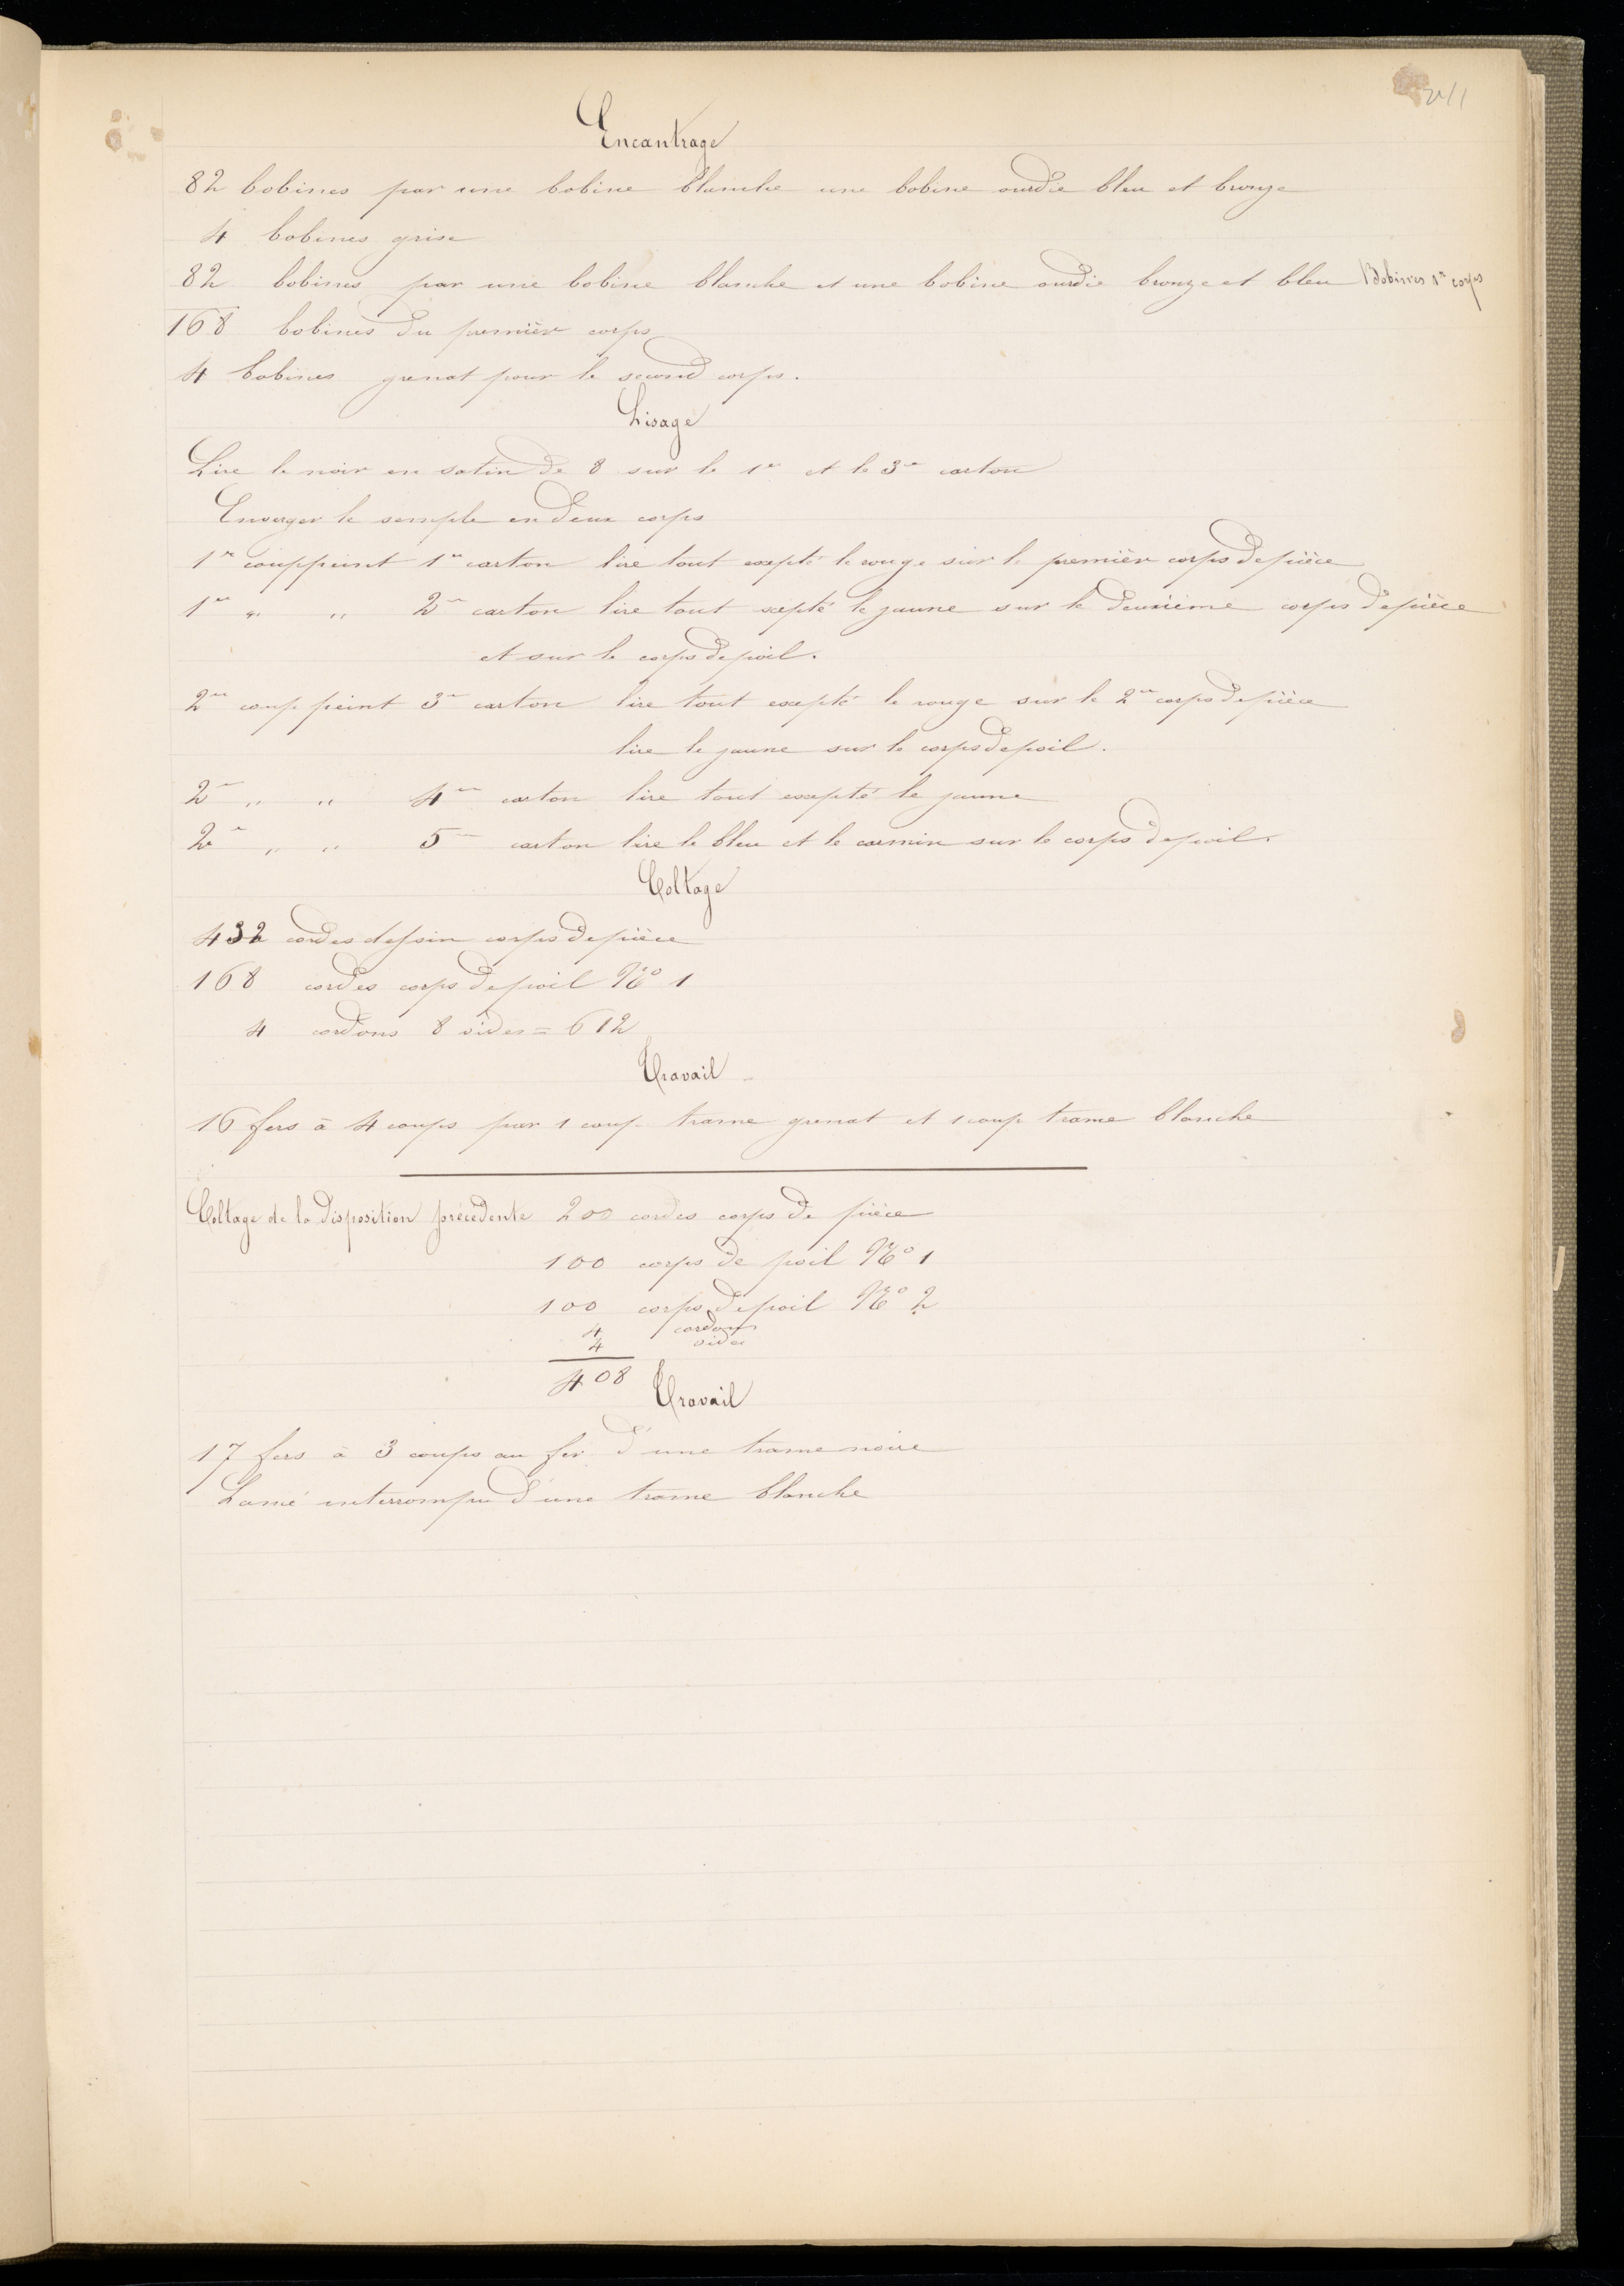 211
Encantrage
82 bobines par une bobine blanche une bobine ourdie bleu et bronze
4 bobines grise
82 bobines par une bobine blanche et une bobine ourdie bronze et bleu Bobines 1er corps
168 bobines du premièr corps
4 bobines grenat pour le second corps.
Lisage
Lire le noir en satin de 8 sur le 1er et le 3me carton
Enverger le semple en deux corps
1er coup peint 1er carton lire tout excepté le rouge sur le premièr corps de pièce
1er " " 2me carton lire tout xepté le jaune sur le deuxième corps de pièce
et sur le corps de poil.
2me coup peint 3me carton lire tout excepté le rouge sur le 2me corps de pièce
lire le jaune sur le corps de poil.
2me " " 4me carton lire tout excepté le jaune
2me " " 5me carton lire le bleu et le carmin sur le corps de poil.
Coltage
432 cordes dessin corps de pièce
168 cordes corps de poil No 1
4 cordons 8 vides = 612
Travail
16 fers à 4 coups par 1 coup trame grenat et 1 coup trame blanche
Coltage de la disposition précedente 200 cordes corps de pièce
100 corps de poil No 1
100 corps de poil No 2
4 cordons
4 vides
408
Travail
17 fers à 3 coups au fer d'une trame noire
Lamé interrompu d'une trame blanche